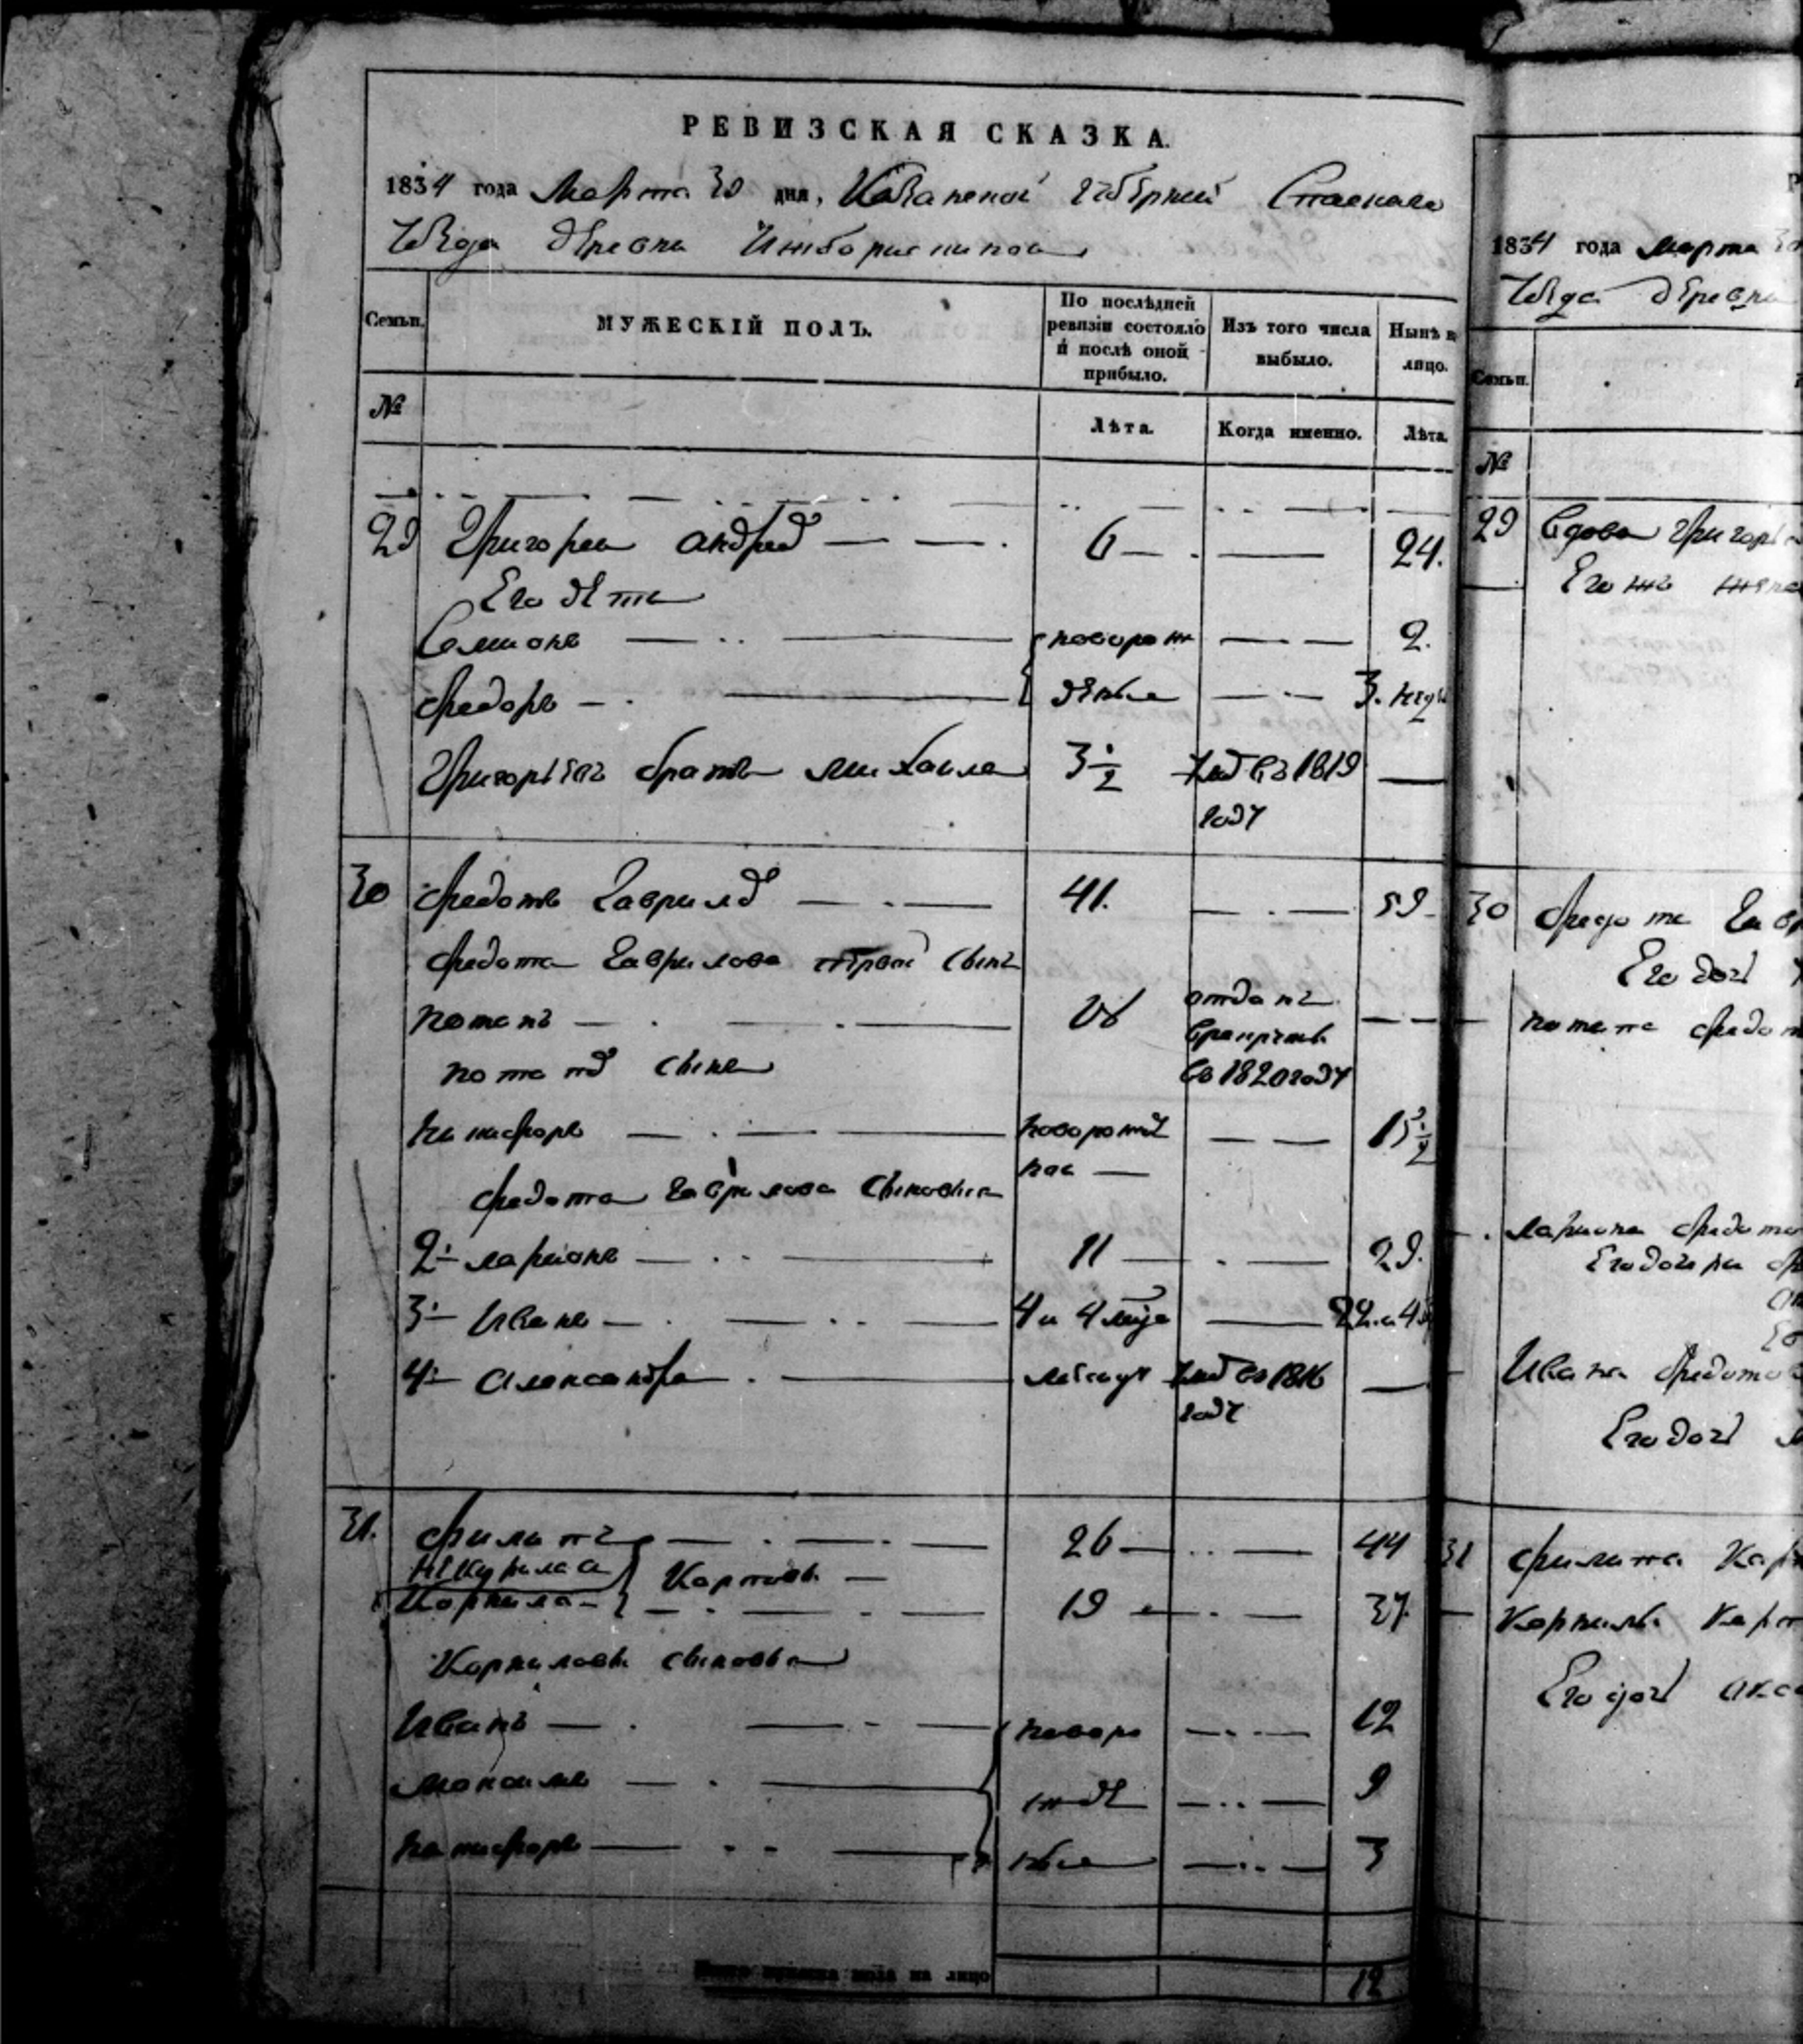 РЕВИЗСКАЯ СКАЗКА.
1834 года Марта 30 дня, Казанской губернии Спаскаго
Уезда деревни
Семьи. МУЖЕСКІЙ ПОЛЪ. По послѣдней ревизіи состояло и послѣ оной прибыло. Изъ того числа выбыло. Нынѣ в лицо.
№ Лѣта. Когда именно. Лѣта.
29 Григореи андреев 6 24.
Его дети
Семионъ новорож 2.
Федоръ денные 3. неде
Григорьевъ братъ михаила 3 1/2 умер въ 1819
году
30 Федотъ Гаврилов 41. 59
Федота Гаврилова первой сынъ
Потапъ отданъ
в рекруты
въ 1820 году
потапов сынъ
Никифоръ новорожде 15 1/2
ной
Федота Гаврилова сыновья
2й ларионъ 11 29.
3й Иванъ 4 и 4 меся 22. и 4
4й Александра месяцу умер въ 1816
году
31. Филипъ 26 44
Некурила
Корнила Карповы 19 37.
Корниловы сыновья
Иванъ новоро 12
Максимъ жде 9
Никифоръ ные 3
Итого мужеска пола на лицо 12
1834 года Марта 30
Уезда деревни
Семьи.
№
29 Вдова Григорья
Его же жена
30 Федота Гав
Его дочь
Потапа Федот
Лариона Федото
Его дочери
Ивана Федотов
Его дочь
31 Филипа Кар
Корнилы Карп
Его дочь акс